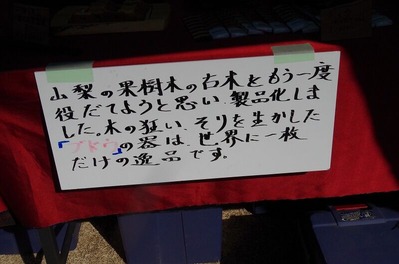 山梨の果樹木の古木をもう一度
役だてようと思い、製品化しま
した。木の狂い、そりを生かした
「ブドウ」の器は、世界に一枚
だけの逸品です。